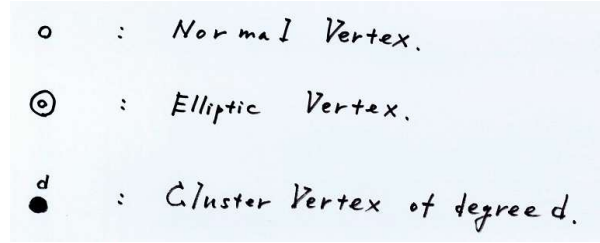 : Normal Vertex.
: Elliptic Vertex.
d : Cluster Vertex of degree d.